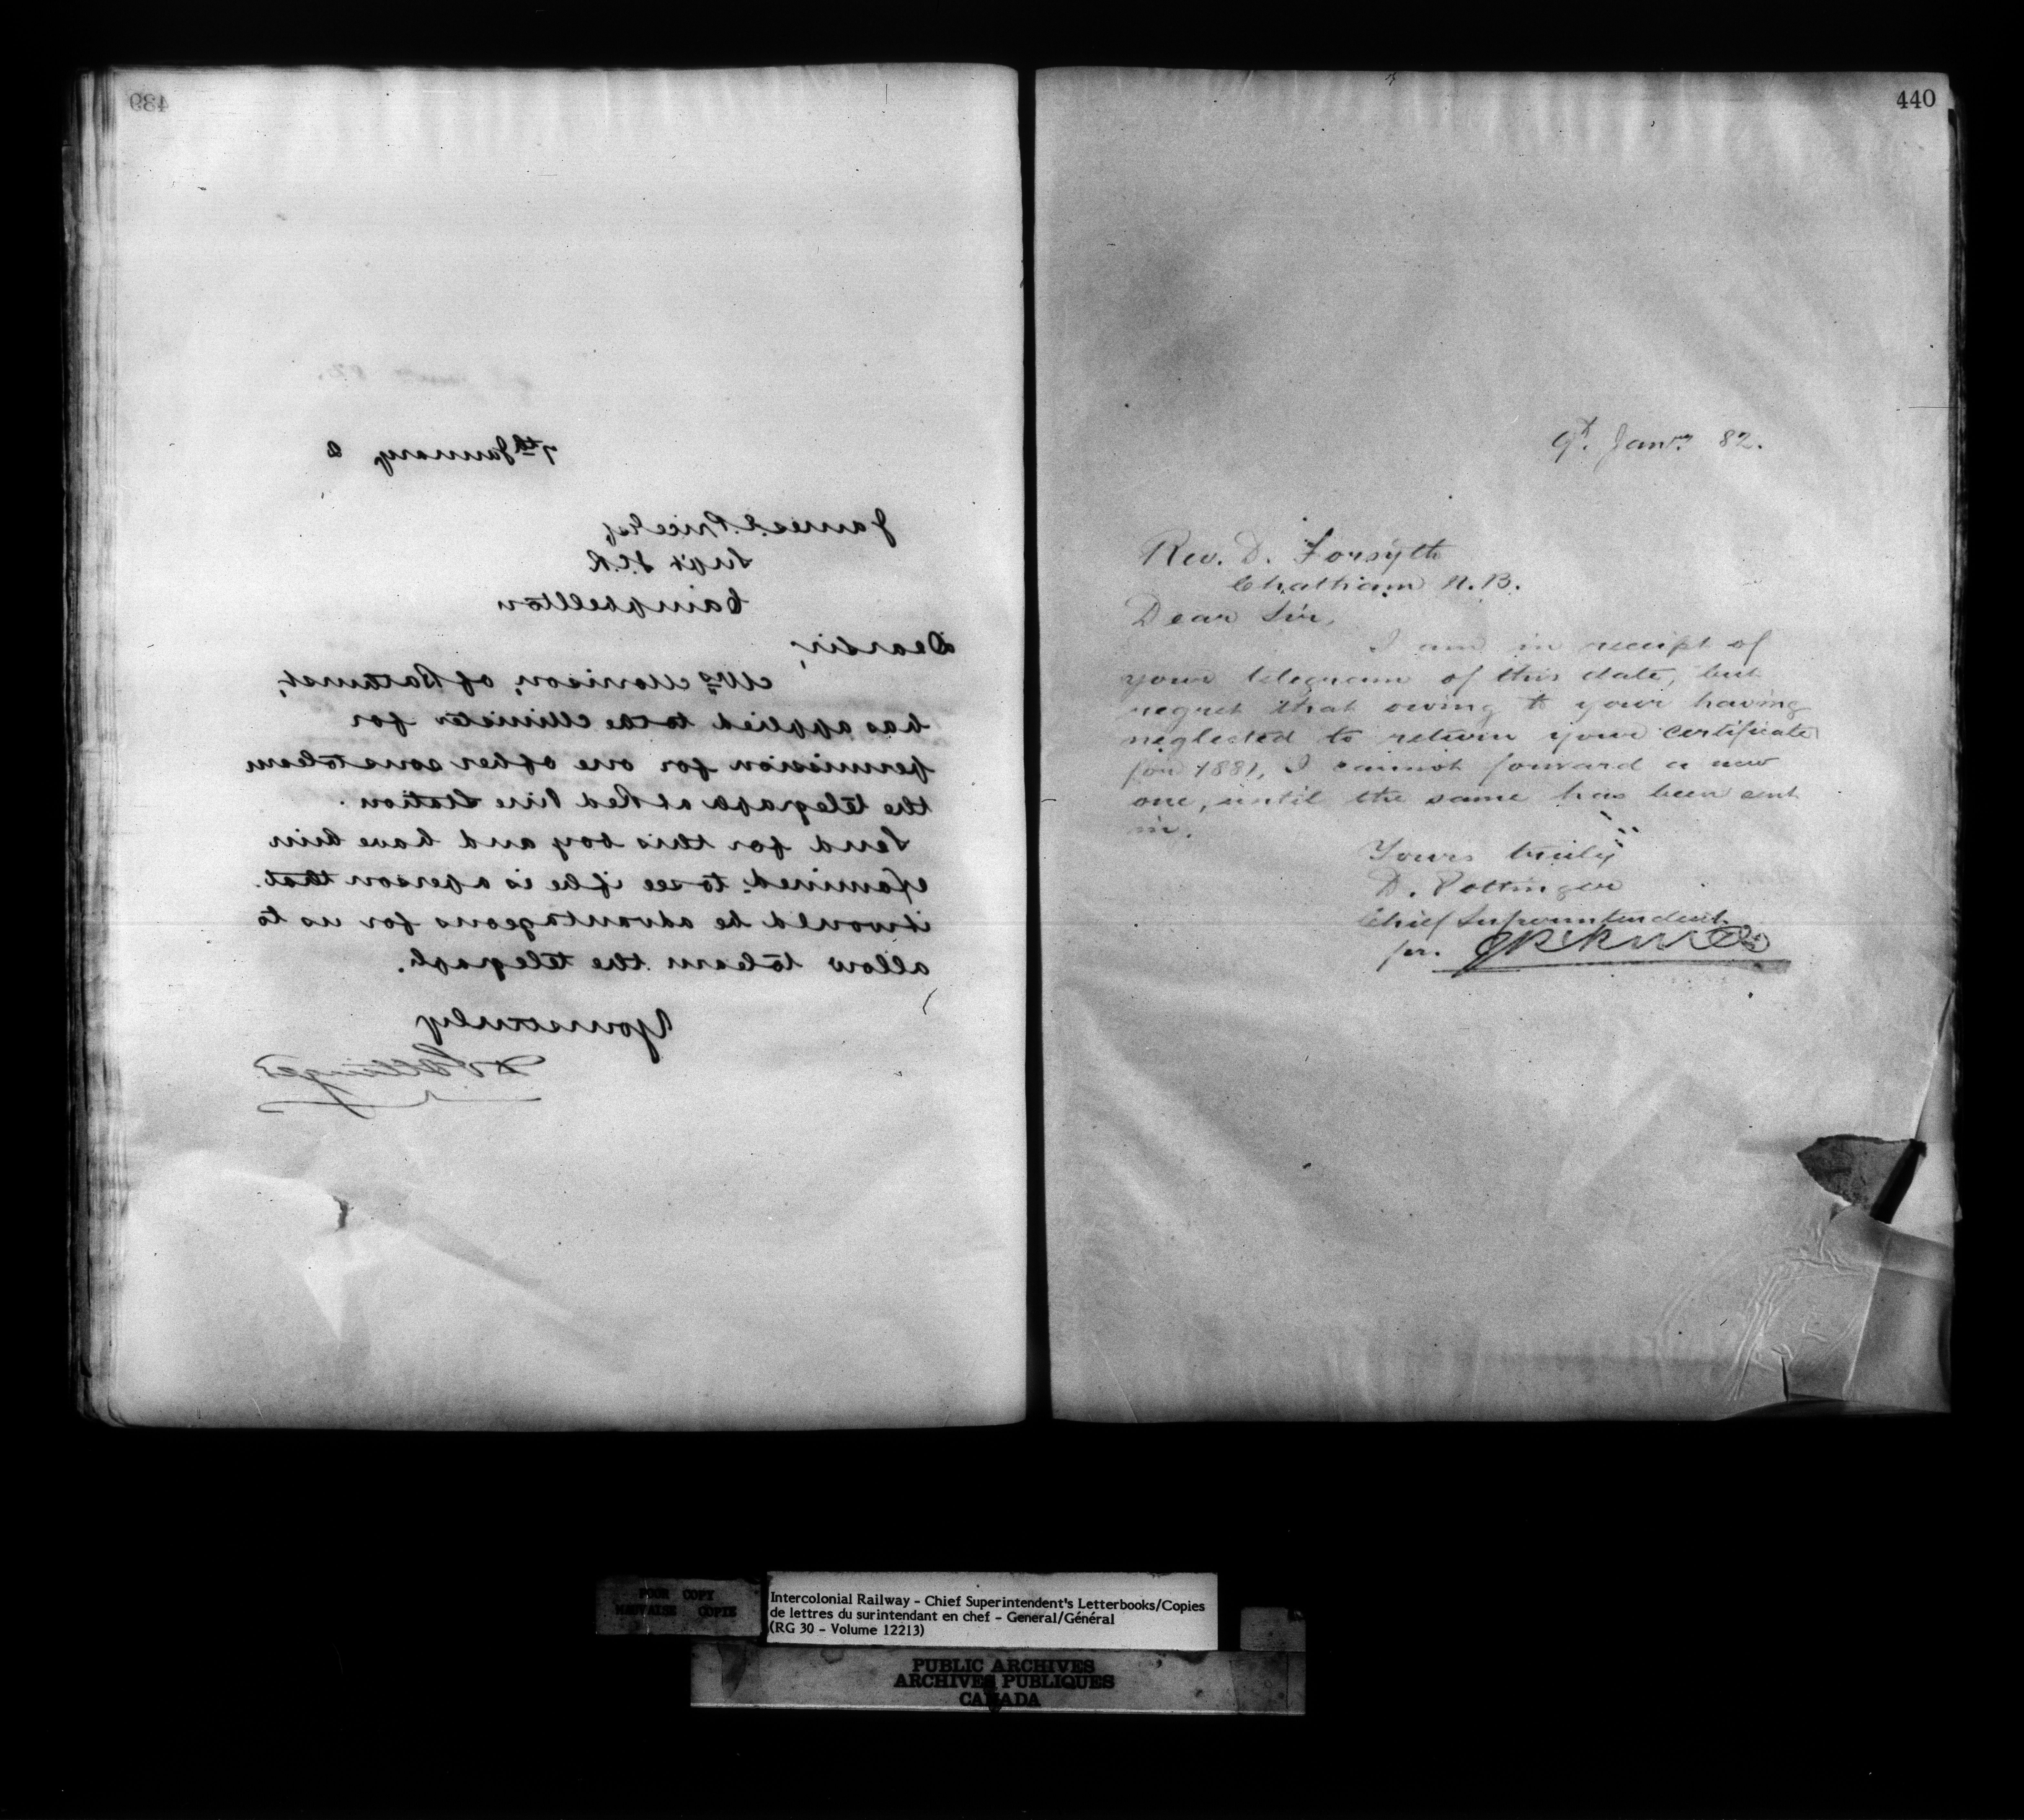 439
7th January 2
James I. Price Esq
Supt I.C.R
Campbellton
Dear Sir,
Mrs Morrison, of Bathurst,
has applied to the Minister for
permission for one of her sons to learn
the telegraph at Red Pine Station.
Send for this boy and have him
examined to see if he is a person that
it would be advantageous for us to
allow to learn the telegraph.
Yours truly
D Pottinger
440
9th. Janry 82.
Rev. D. Forsyth
Chatham N.B.
Dear Sir,
I am in receipt of
your telegram of this date, but
regret that owing to your having
neglected to return your certificate
for 1881, I cannot forward a new
one, until the same has been sent
in.
Yours truly
D. Pottinger
Chief Superintendent
per.
POOR COPY
MAUVAISE COPIE
Intercolonial Railway - Chief Superintendent's Letterbooks/Copies
de lettres du surintendant en chef - General/Général
(RG 30 - Volume 12213)
PUBLIC ARCHIVES
ARCHIVES PUBLIQUES
CANADA